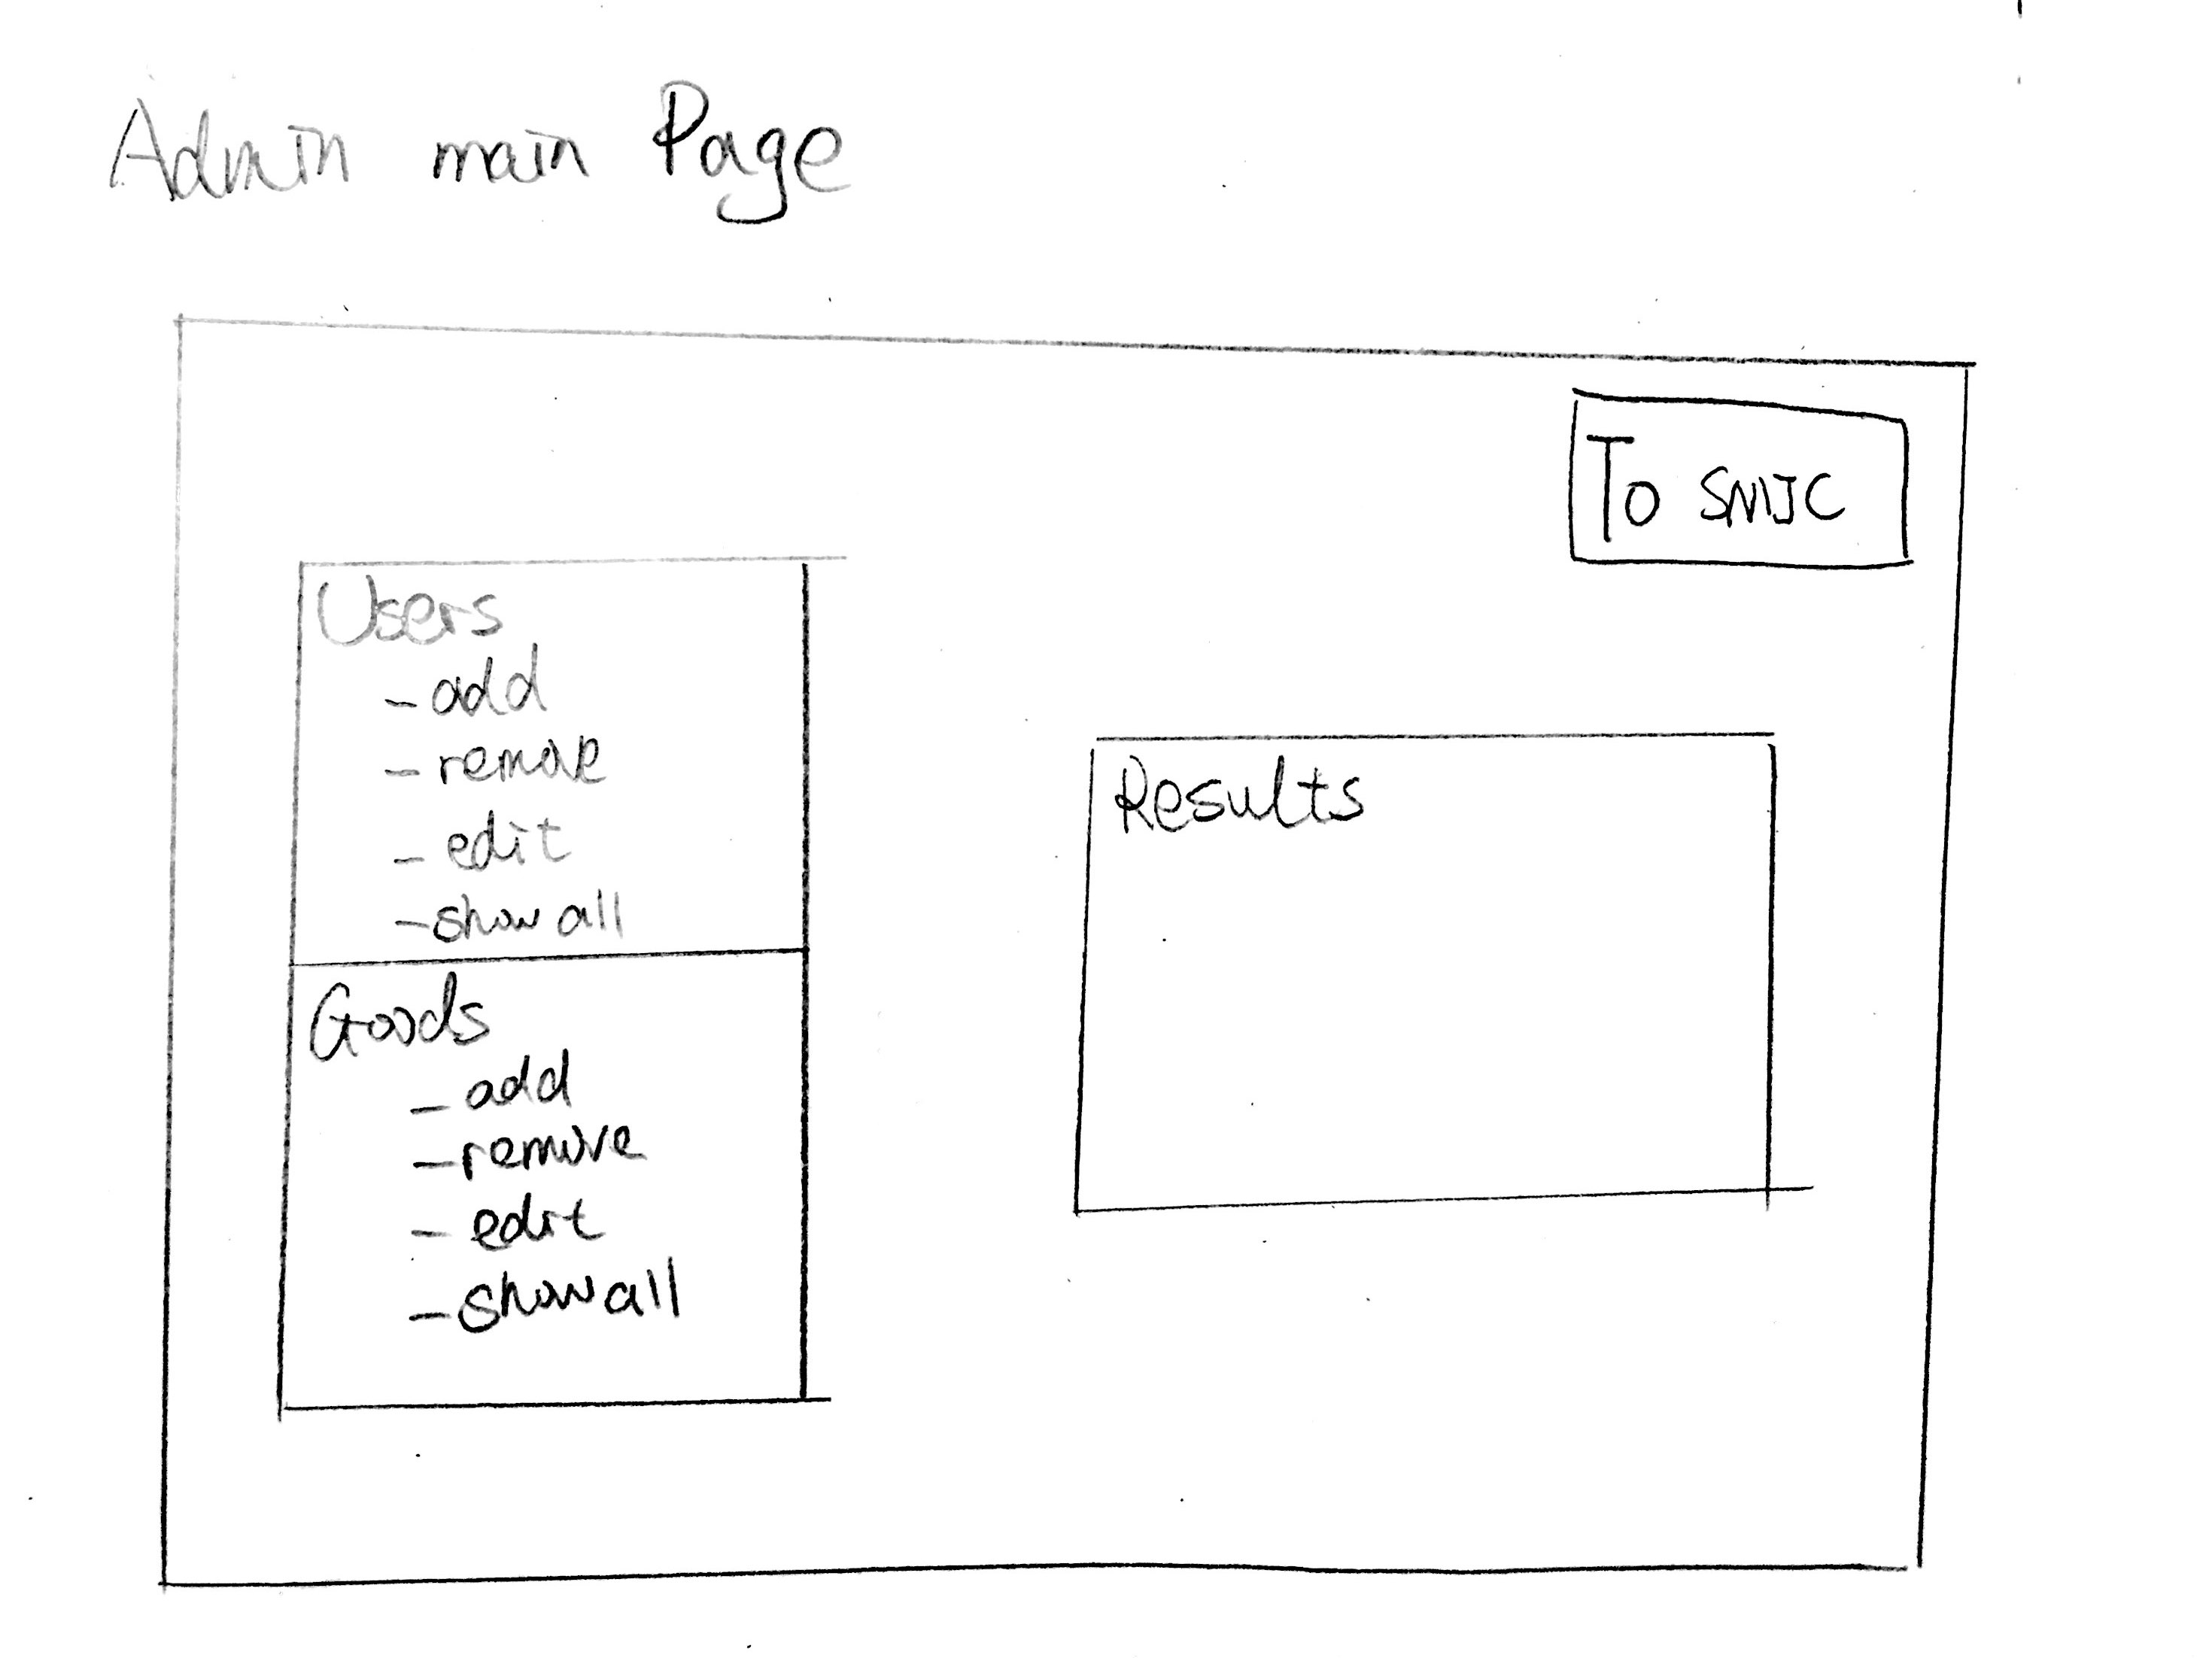 Admin main Page
To SMJC
Users
- add
- remove
- edit
- show all
Goods
- add
- remove
- edit
- show all
Results